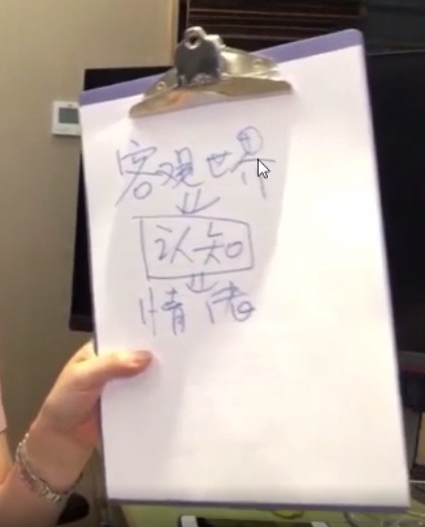 客观世界
认知
情绪